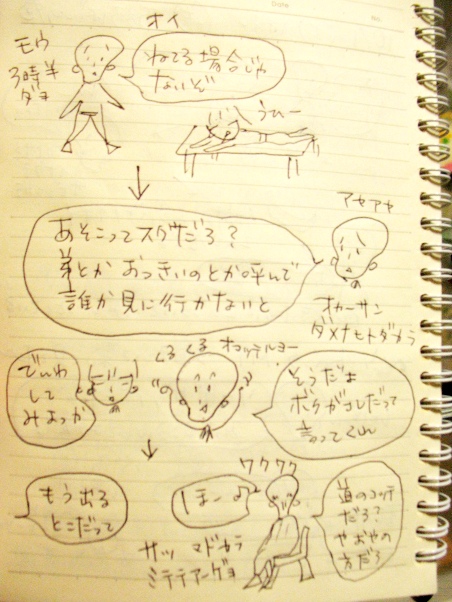 オイ
モウ
3時半
ダヨ
ねてる場合じゃ
ないぞ
うひー
アセアセ
あそこってスグだろ?
弟とか おっきいのとか呼んで
誰か見に行かないと
オカーサン
ダメナヒトダカラ
でんわ
して
みよっか
くるくる
そうだよ
ボクがコレだって
言ってくれ
もう出る
とこだって
ワクワク
ほーっ
サッ マドカラ
ミテテアーゲヨ
道のコッチ
だろ?
やおやの
方だろ